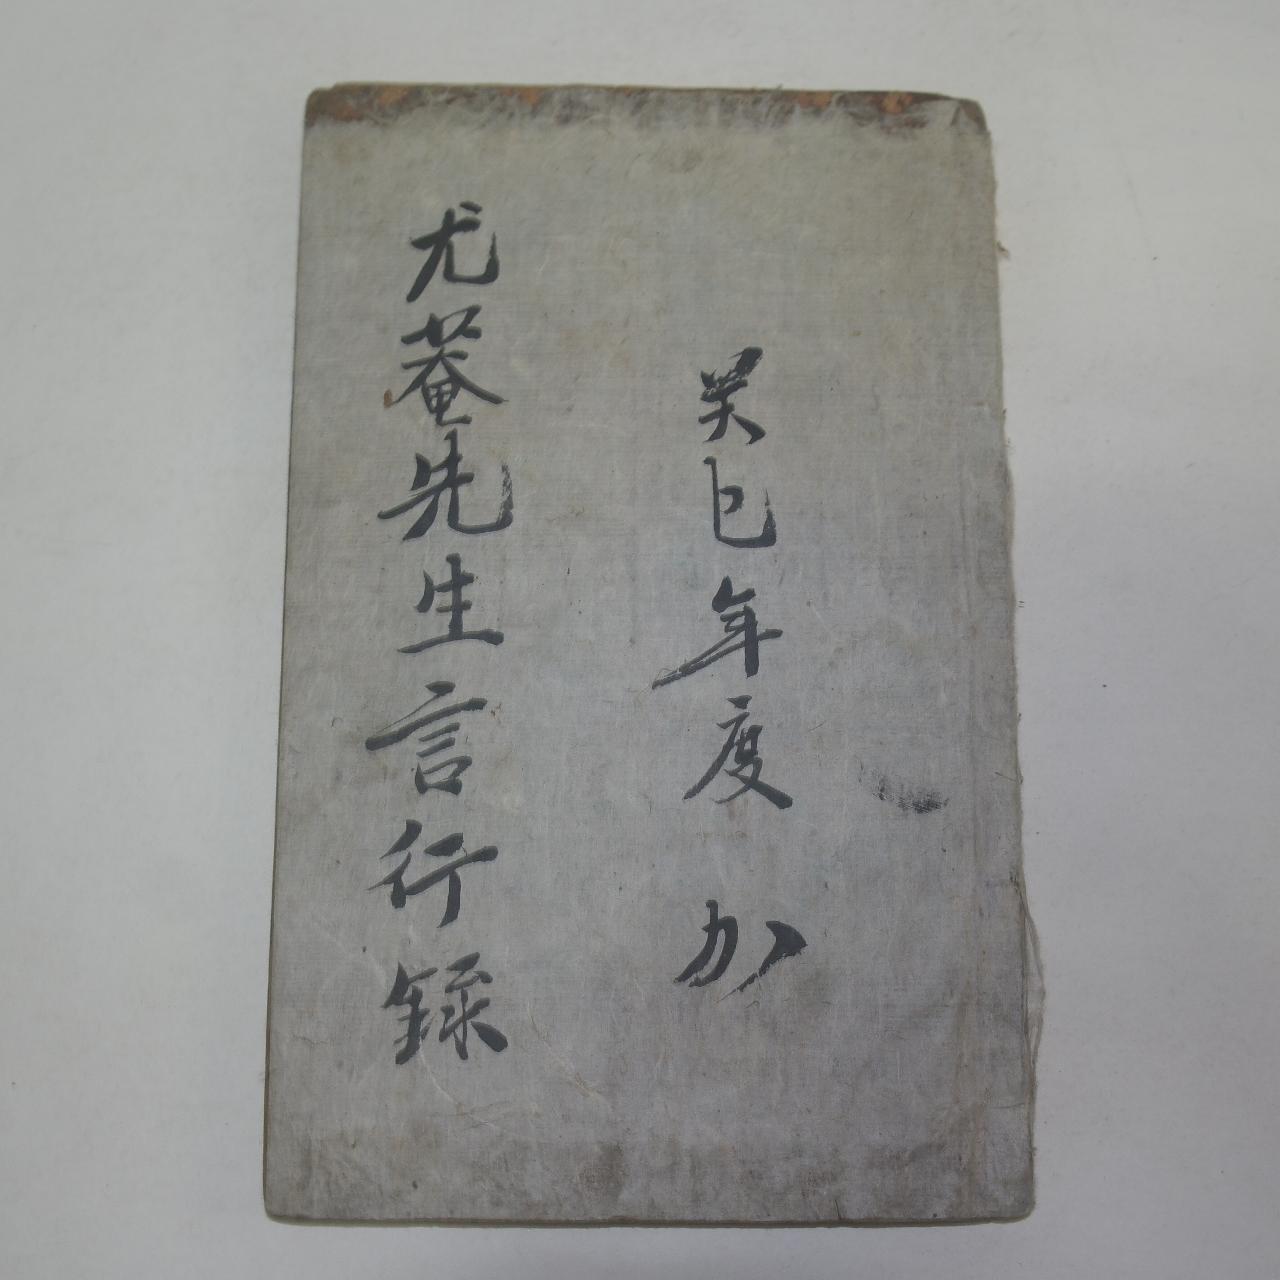 癸巳年度
尤菴先生言行錄